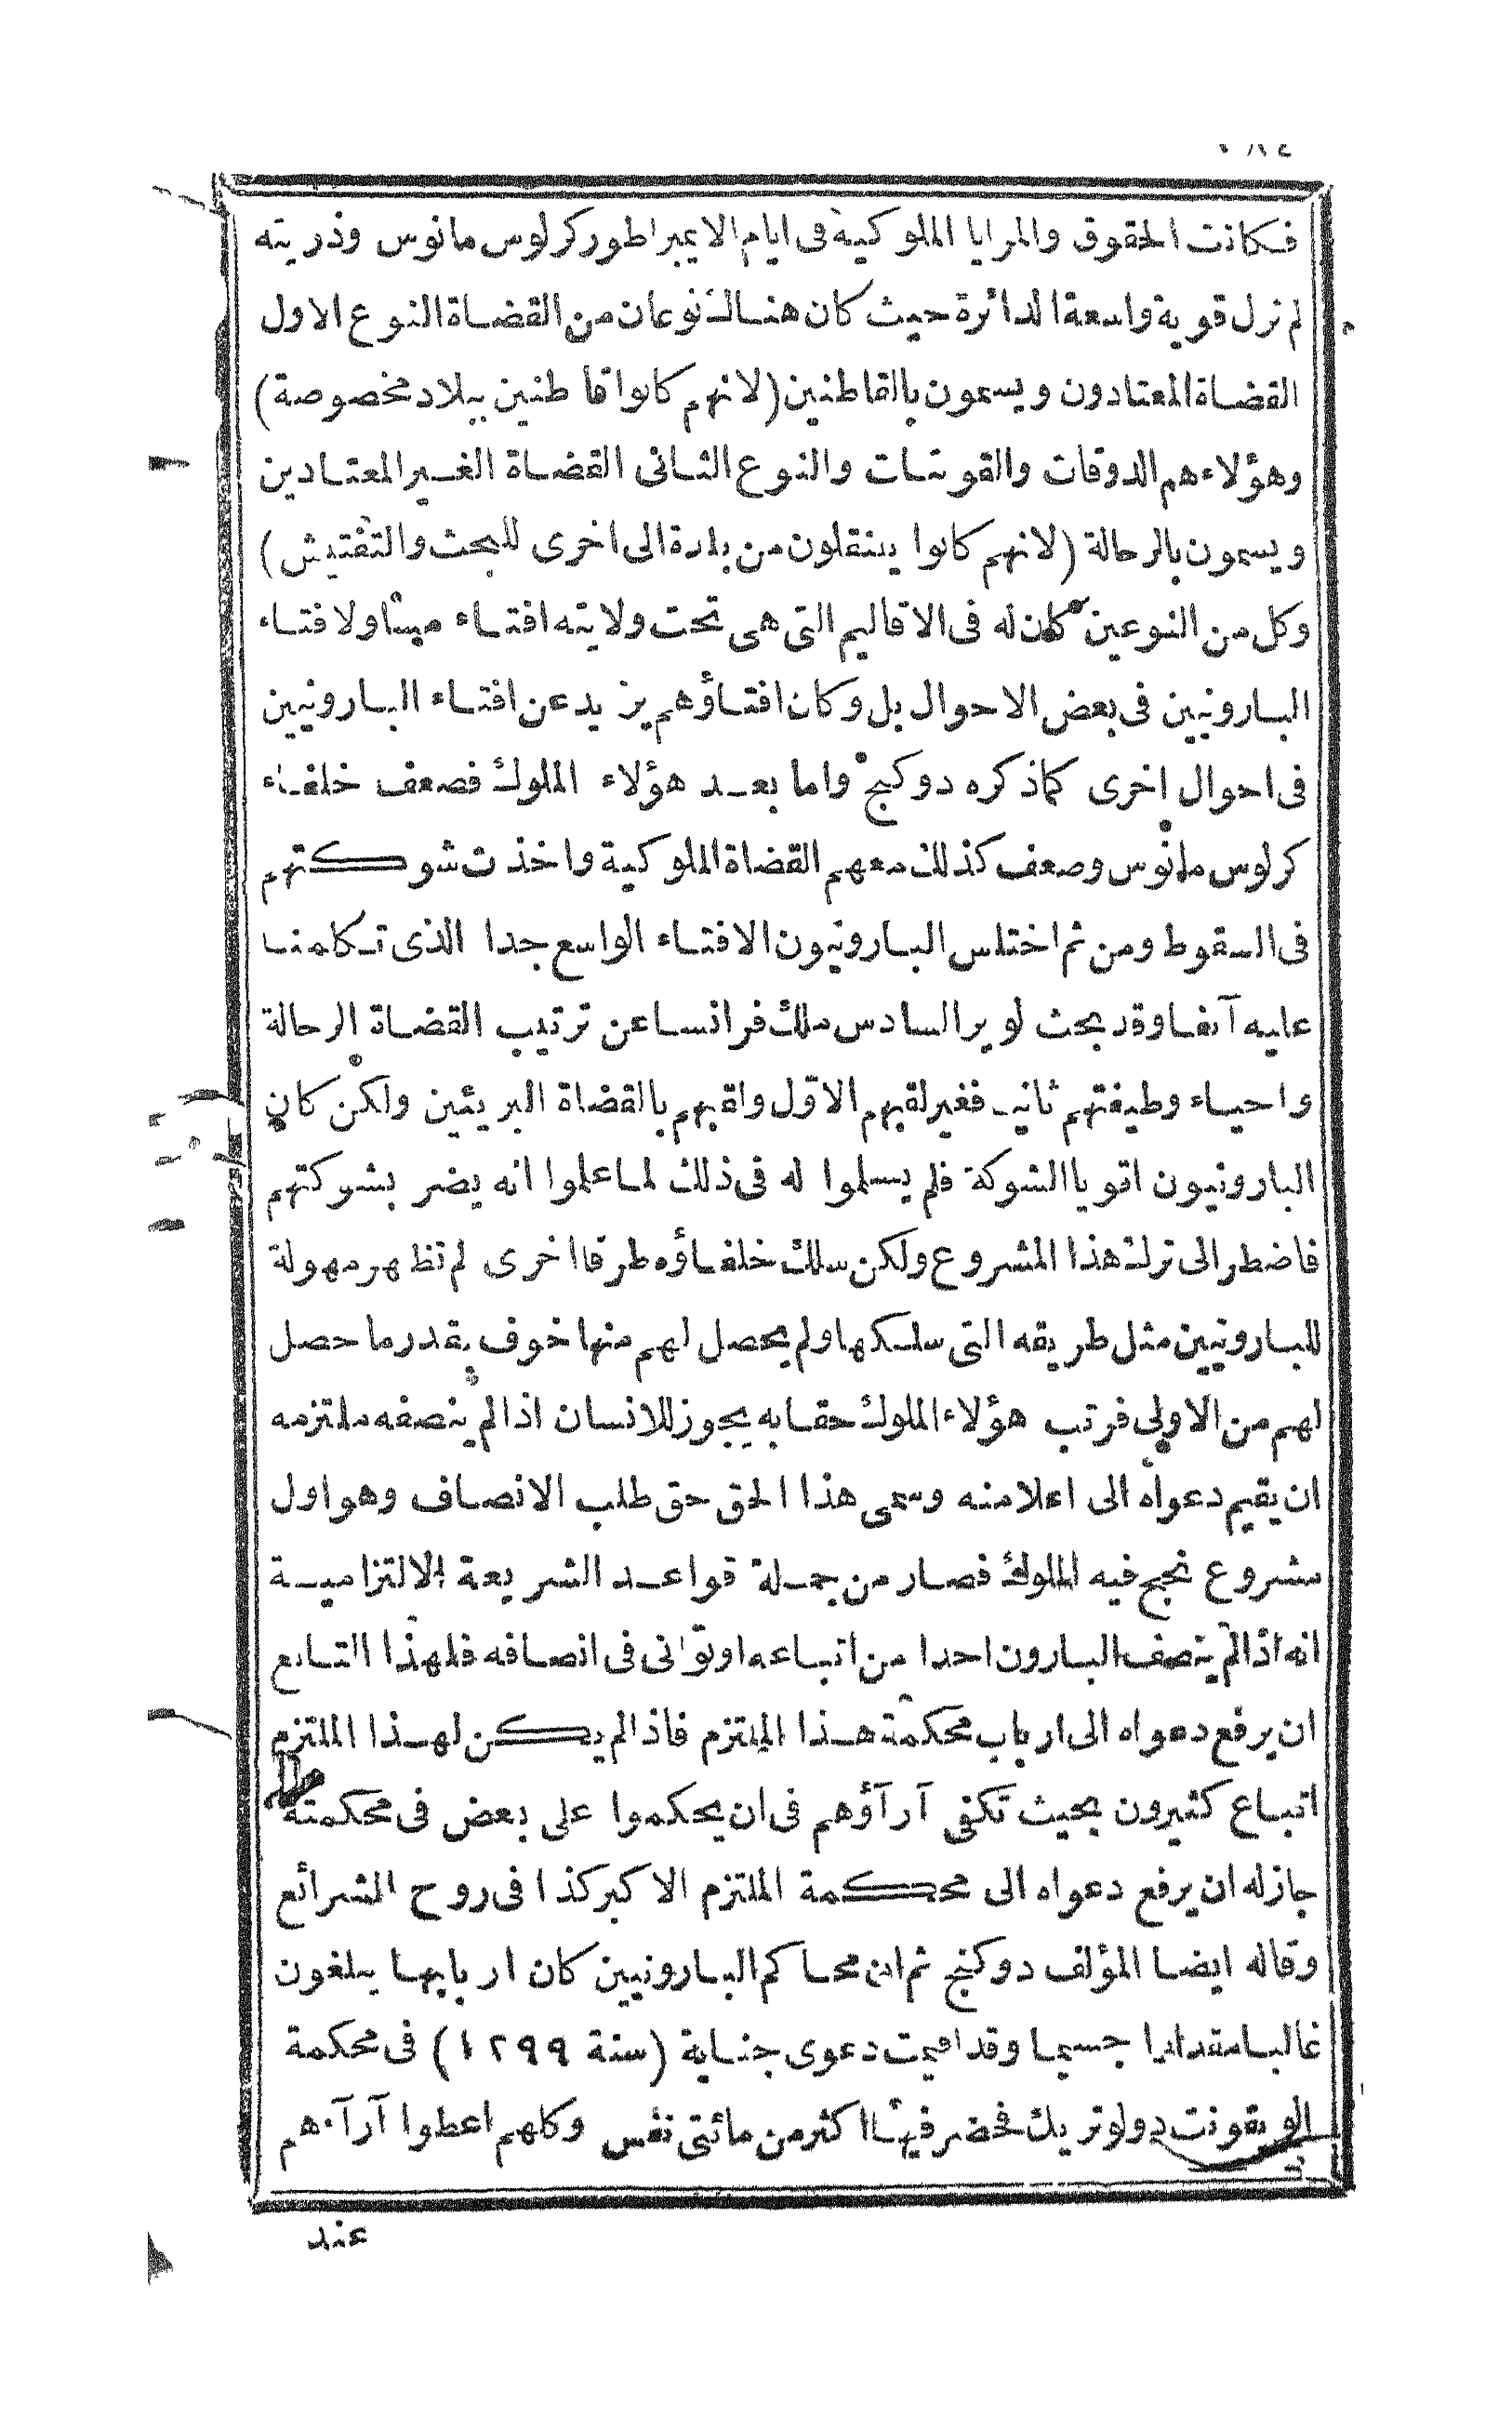 فكانت الحقوق والمزايا الملوكية فى ايام الايمبراطور كرلوس مانوس وذريته
لم تزل قوية واسعة الدائرة حيث كان هنالك نوعان من القضاة النوع الاول
القضاة المعتادون ويسمون بالقاطنين (لانهم كانوا قاطنين ببلاد مخصوصة)
وهؤلاء هم الدوقات والقونتات والنوع الثانى القضاة الغير المعتادين
ويسمون بالرحالة (لانهم كانوا ينتقلون من بلدة الى اخرى للبحث والتفتيش)
وكل من النوعين كان له فى الاقاليم التى هى تحت ولايته افتاء مساو لافتاء
البارونيين فى بعض الاحوال بل وكان افتاؤهم يزيد عن افتاء البارونيين
فى احوال اخرى كما ذكره دوكنج واما بعد هؤلاء الملوك فضعف خلفاء
كرلوس مانوس وضعف كذلك معهم القضاة الملوكية واخذت شوكتهم
فى السقوط ومن ثم اختلس البارونيون الافتاء الواسع جدا الذى تكلمنا
عليه آنفا وقد بحث لويز السادس ملك فرانسا عن ترتيب القضاة الرحالة
واحياء وظيفتهم ثانيا فغير لقبهم الاول ولقبهم بالقضاة البريئين ولكن كان
البارونيون اقوياالشوكة فلم يسلموا له فى ذلك لما علموا انه يضر بشوكتهم
فاضطر الى ترك هذا المشروع ولكن سلك خلفاؤه طرقا اخرى لم تظهر مهولة
للبارونيين مثل طريقه التى سلكها ولم يحصل لهم منها خوف بقدر ما حصل
لهم من الاولى فرتب هؤلاء الملوك حقا به يجوز للانسان اذا لم ينصفه ملتزمه
ان يقيم دعواه الى اعلا منه وسمى هذا الحق حق طلب الانصاف وهو اول
مشروع نجح فيه الملوك فصار من جملة قواعد الشريعة الالتزامية
انه اذا لم ينصف البارون احدا من اتباعه او توانى فى انصافه فلهذا التابع
ان يرفع دعواه الى ارباب محكمة هذا الملتزم فاذا لم يكن لهذا الملتزم
اتباع كثيرون بحيث تكفى آرآؤهم فى ان يحكموا على بعض فى محكمته
جاز له ان يرفع دعواه الى محكمة الملتزم الاكبر كذا فى روح الشرائع
وقاله ايضا المؤلف دوكنج ثم ان محاكم البارونيين كان اربابها يبلغون
غالبا مقدارا جسيما وقد اقيمت دعوى جناية (سنة ١٢٩٩) فى محكمة
الويقونت دولوتريك فحضر فيها اكثر من مائتى نفس وكلهم اعطوا آرآءهم
عند